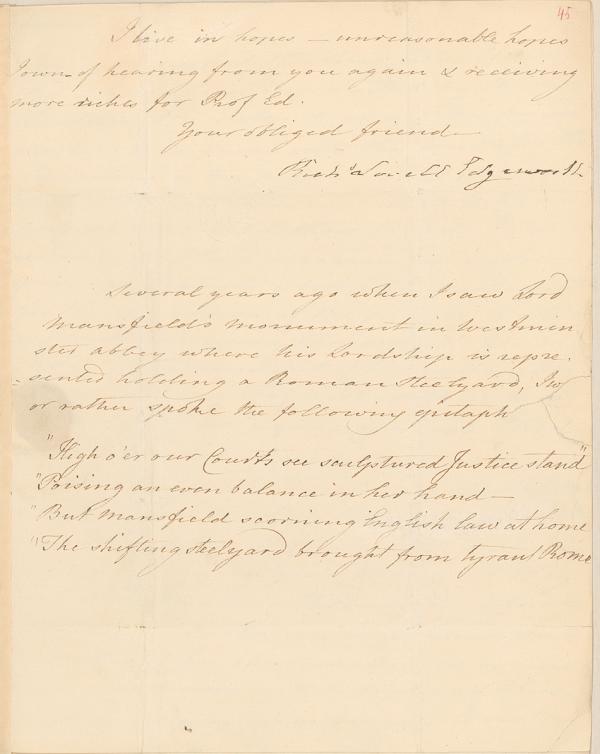 45
I live in hopes – unreasonable hopes
I own – of hearing from you again & receiving
more riches for Prof Ed.
Your obliged friend –
Richd Lovell Edgeworth.
Several years ago when I saw Lord
Mansfield's monument in Westmin
ster abbey where his Lordship is repre.
sented holding a Roman Steelyard, I w
or rather spoke the following epitaph
"High o'er our Courts see sculptured Justice stand"
"Poising an even balance in her hand –
"But Mansfield scorning English law at home
"The shifting steelyard brought from tyrant Rome